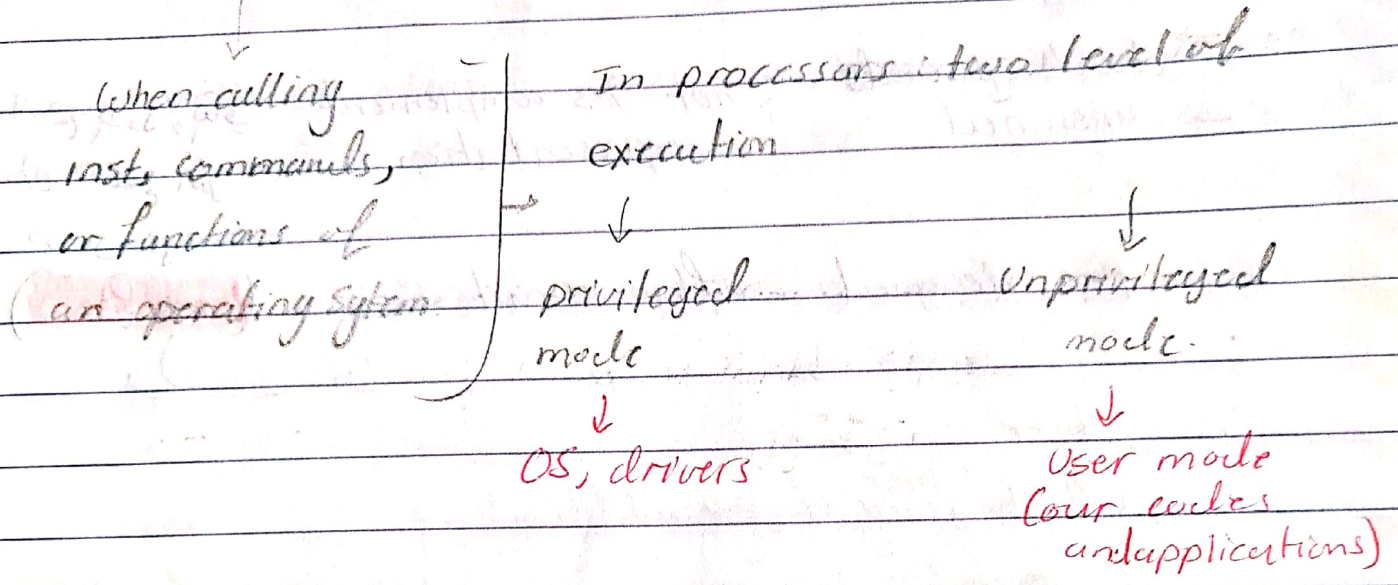 When calling
inst, commands,
or functions of
(an operating Sytem
In processors : two level of
execution
privileged
mode
Unprivileged
mode.
OS, drivers
User mode
(our codes
and applications)